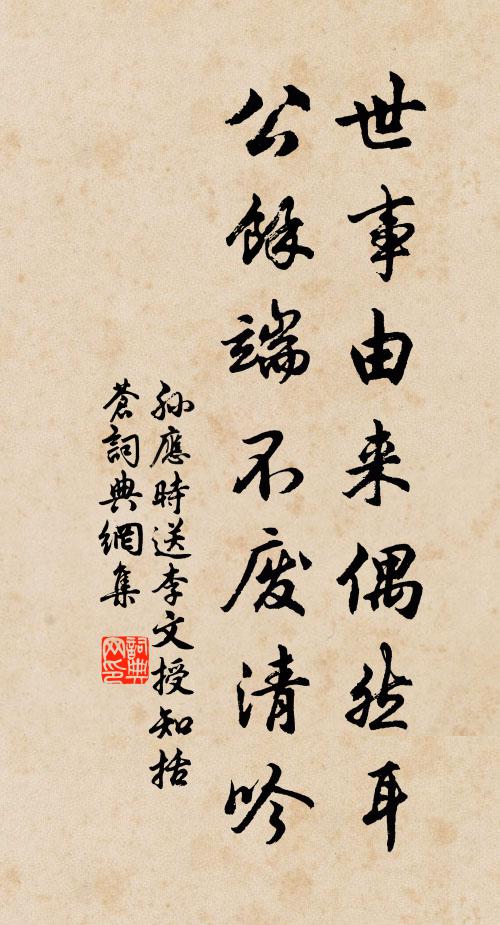 世事由来偶然耳
公餘端不废清吟
孙應時送李文授知括
蒼詞典網集
詞典网印